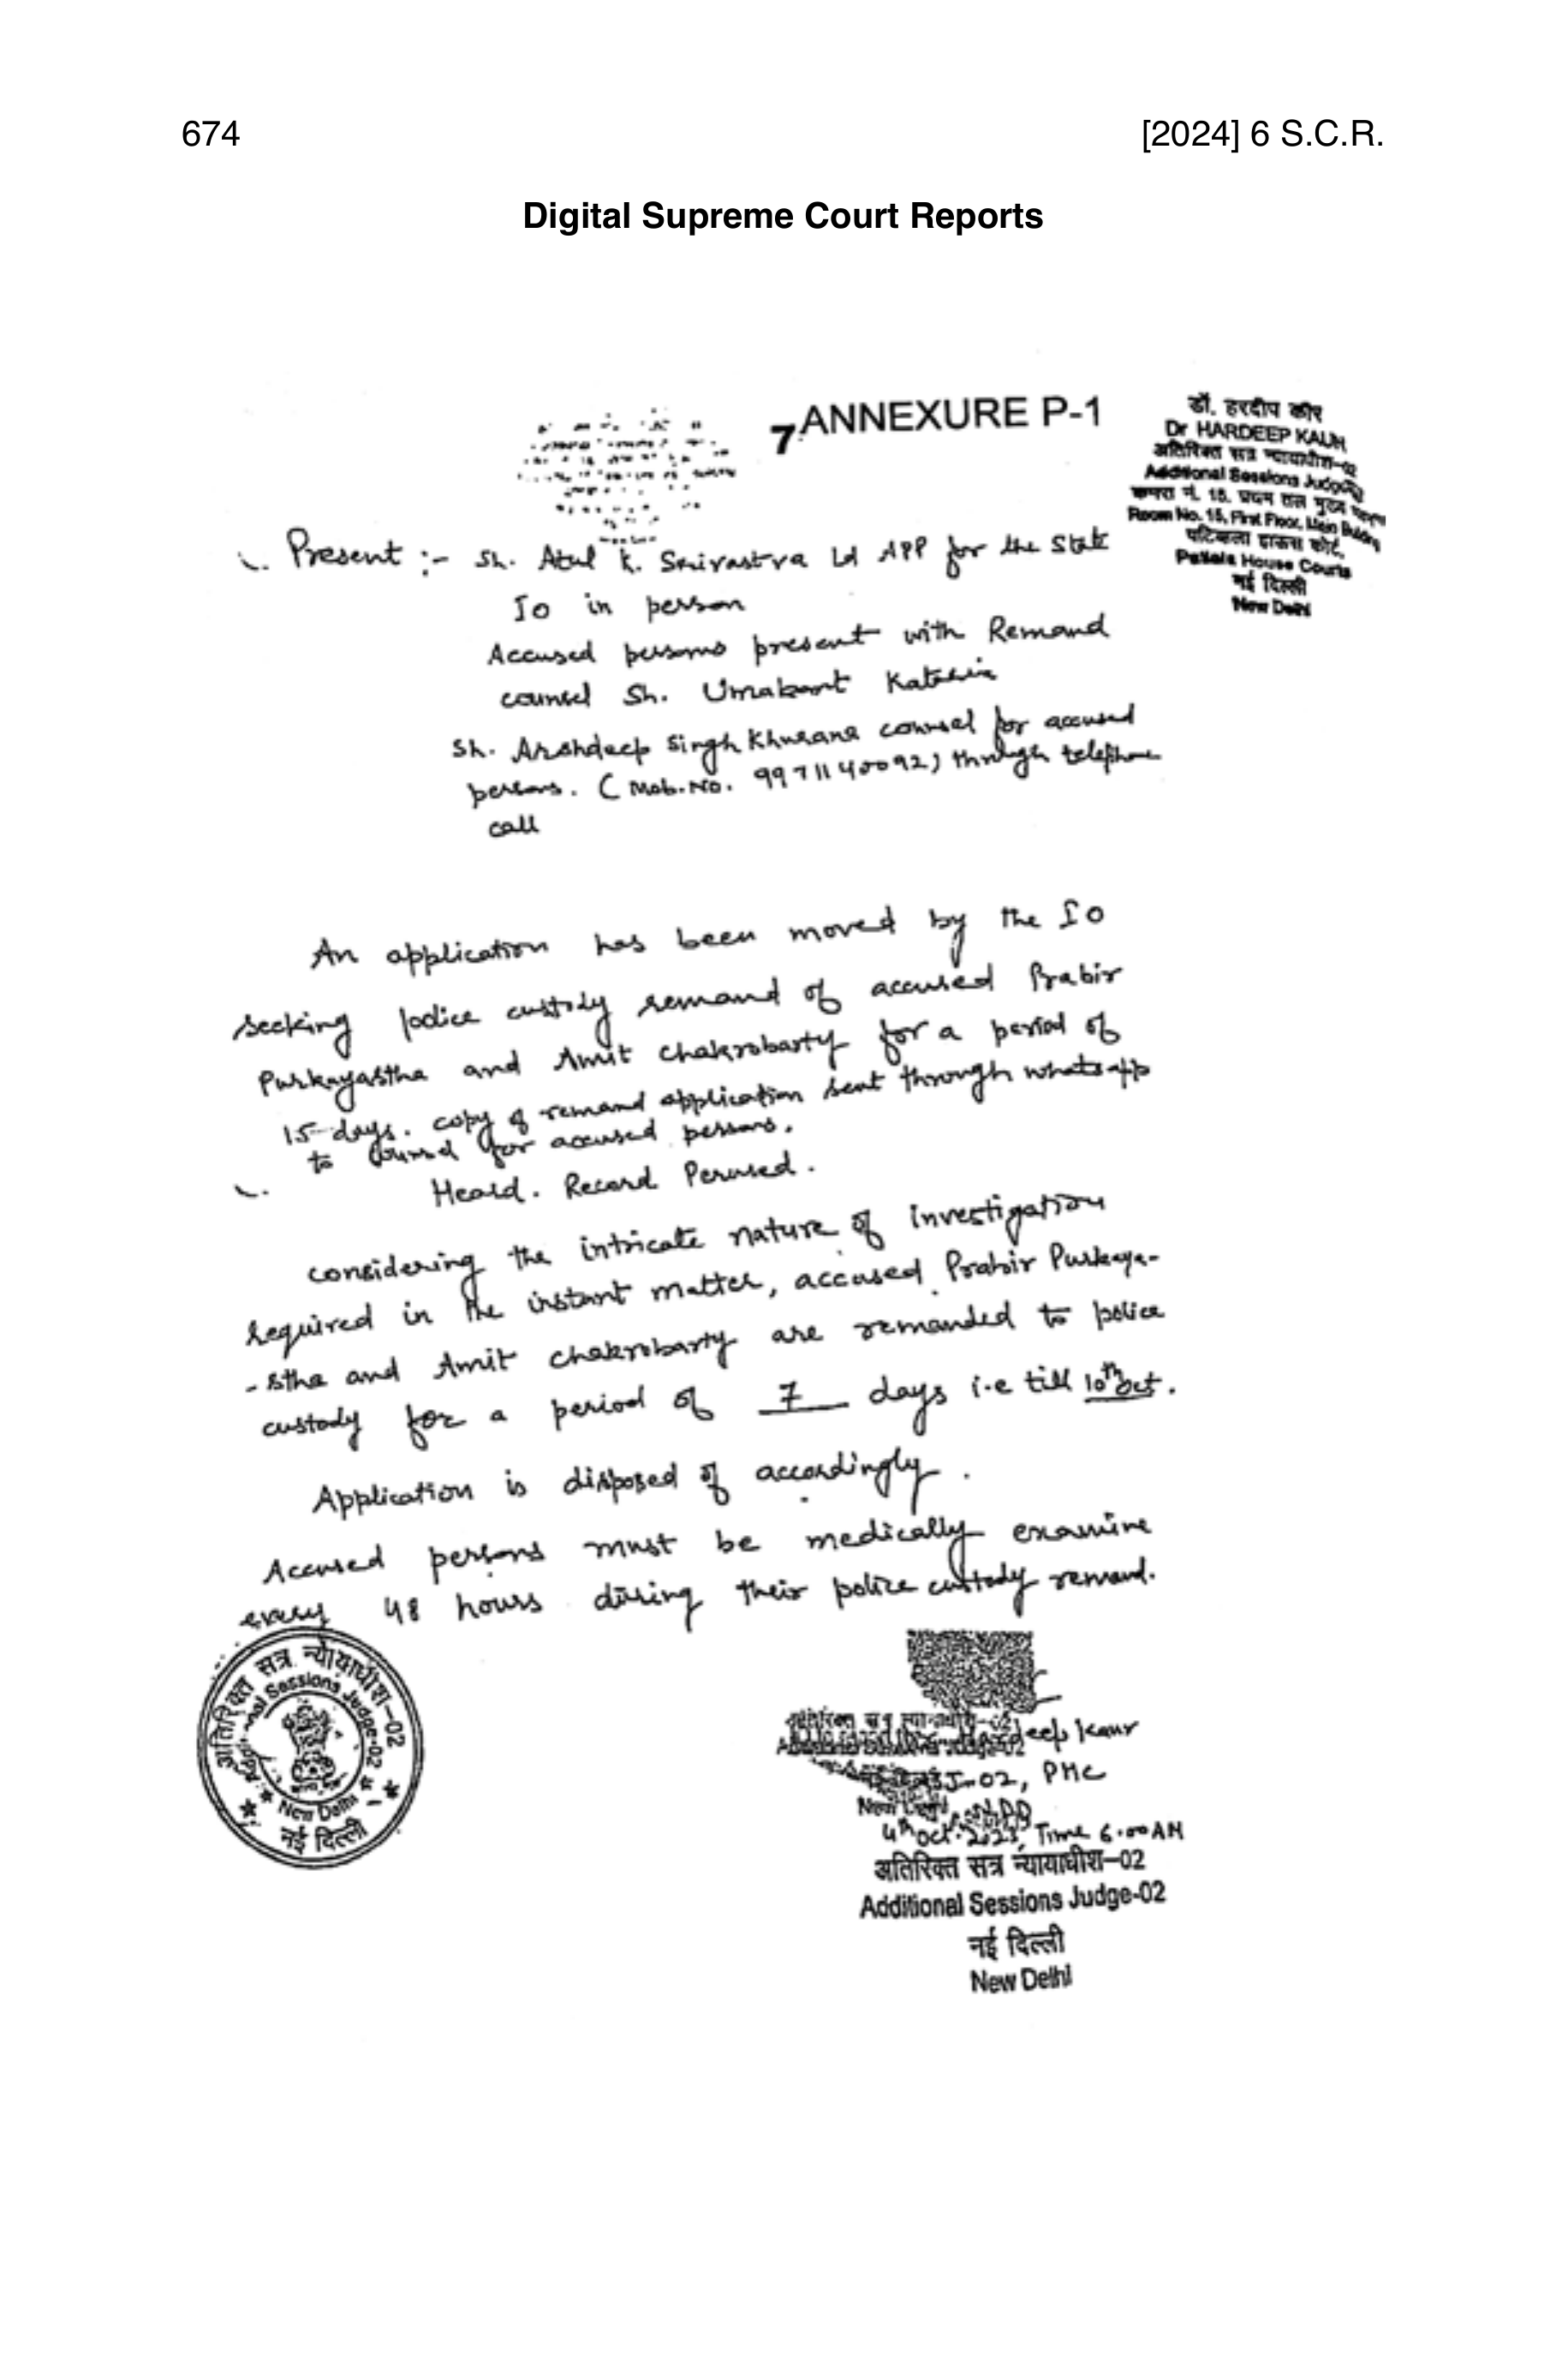 674
[2024] 6 S.C.R.
Digital Supreme Court Reports
7 ANNEXURE P-1
डॉ. हरदीप कौर
Dr HARDEEP KAUR
अतिरिक्त सत्र न्यायाधीश-02
Additional Sessions Judge
कमरा नं. 15, प्रथम तल मुख्य
Room No. 15, First Floor, Main Building
पटियाला हाऊस कोर्ट,
Patiala House Courts
नई दिल्ली
New Delhi
Present :- Sh. Atul K. Srivastva Ld APP for the State
IO in person
Accused persons present with Remand
counsel Sh. Umakant
Sh. Arshdeep Singh Khurana counsel for accused
persons. (Mob. No. 9971140092) through telephone
call
An application has been moved by the IO
seeking police custody remand of accused Prabir
Purkayastha and Amit Chakrobarty for a period of
15 days. copy of remand application sent through whatsapp
to counsel for accused persons.
Heard. Record Perused.
considering the intricate nature of investigation
required in the instant matter, accused Prabir Purkaya-
-stha and Amit chakrobarty are remanded to police
custody for a period of 7 days i.e till 10th Oct.
Application is disposed of accordingly.
Accused persons must be medically examine
every 48 hours during their police custody remand.
अतिरिक्त सत्र न्यायाधीश-02
Sessions Judge-02
New Delhi
नई दिल्ली
Hardeep Kaur
ASJ-02, PHC
New Delhi
4th Oct. 2023, Time 6.00 AM
अतिरिक्त सत्र न्यायाधीश-02
Additional Sessions Judge-02
नई दिल्ली
New Delhi